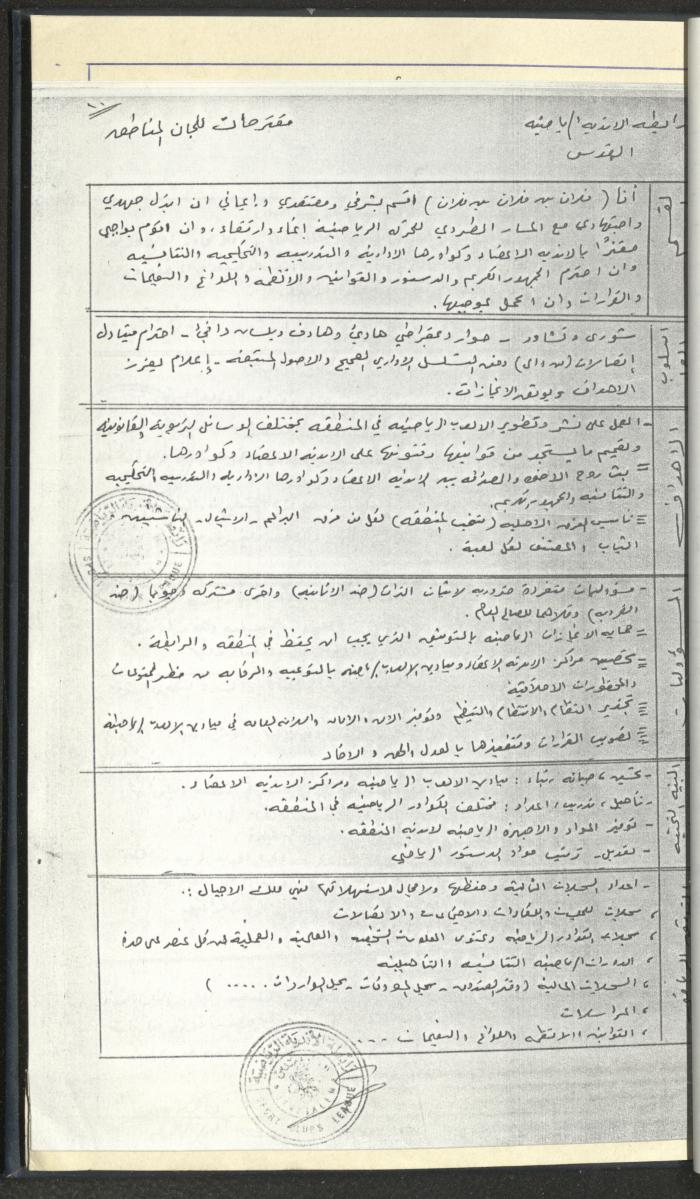 رابطة الاندية الرياضية
القدس
مقترحات للجان المناطق
١٠
أنا (فلان بن فلان بن فلان) أقسم بشرفي ومعتقدي وإيماني ان ابذل جهدي
واجتهادي مع المسار الطردي للحركة الرياضية إنماء وارتقاء، وان اقوم بواجبي
بالاندية الاعضاء وكوادرها الادارية والتدريبية والتحكيمية والتنافسية
وان احترم الجمهور الكريم والدستور والقوانين والأنظمة واللوائح والتعليمات
والقرارات وان اعمل بموجبها.
اسلوب
شورى وتشاور - حوار ديمقراطي هادئ وهادف وبلسان دافئ - احترام متبادل
إتصالات وفق التسلسل الاداري الصحيح والاصول المتبعة - إعلام يعزز
الاهداف ويوثق الانجازات.
الاهداف
- العمل على نشر وتطوير الالعاب الرياضية في المنطقة بمختلف الوسائل التربوية القانونية
وتعميم ما يستجد من قوانينها وفنونها على الاندية الاعضاء وكوادرها.
= بث روح الاخوة والصداقة بين الاندية الاعضاء وكوادرها الادارية والتدريبية التحكيمية
والتنافسية والجمهور الكريم
≡ تأسيس الفرق الاهلية (منتخب المنطقة) لكل من فرق البراعم - الاشبال - الناشئين -
الشباب والمعتزلين لكل لعبة.
المسؤوليات
- مسؤوليات منفردة ضرورية لاثبات الذات (ضد الانانية) واخرى مشتركة وجوبا (ضد
الفردية) وكلاهما للصالح العام.
= حماية الانجازات الرياضية بالتوثيق الذي يجب ان يحفظ في المنطقة والرابطة.
≡ تحصين مراكز الاندية الاعضاء وميادين الالعاب الرياضية بالتوعية والرقابة من خطر الممنوعات
والمحظورات الاخلاقية
تجذير النظام والانتظام والتنظيم وتوفير الامن والامان والسلامة العامة في ميادين الالعاب الرياضية
تصويب القرارات وتنفيذها بالعدل والحق والاتحاد
البنية التحتية
- تحسين، صيانة، بناء: ميادين الالعاب الرياضية ومراكز الاندية الاعضاء.
- تأهيل، تدريب، اعداد: مختلف الكوادر الرياضية في المنطقة.
- توفير المواد والاجهزة الرياضية لاندية المنطقة.
- تعديل - ترتيب مواد الدستور الرياضي
- اعداد السجلات التالية وحفظها ولا مجال للاستهلاك بها فهي ملك الاجيال:.
، سجلات للجلسات واللقاءات والاجتماعات والاتصالات
، سجلات الكوادر الرياضية وتحتوي المعلومات الشخصية والعلمية والعملية لكل عنصر على حدة
، الدورات الرياضية التنافسية والتأهيلية
، السجلات المالية (دفتر الصندوق - سجل المصروفات - سجل الواردات .....)
، المراسلات
، القوانين والانظمة واللوائح والتعليمات ....
رابطة الأندية الرياضية
SPORT CLUBS LEAGUE